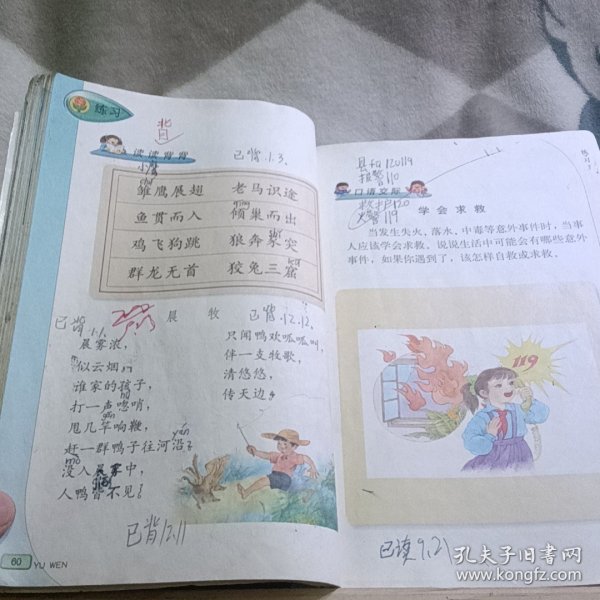 练习
背
读读背背
已背1.3.
小鹰
chú
雏鹰展翅 老马识途
qīng
鱼贯而入 倾巢而出
鸡飞狗跳 狼奔豕突
kū
群龙无首 狡兔三窟
已背1.1.
晨牧
已背.12.12.
晨雾浓,
似云烟,
谁家的孩子,
打一声唿哨,
甩几竿响鞭,
赶一群鸭子往河沿,
没入晨雾中,
人鸭皆不见!
只闻鸭欢呱呱叫,
伴一支牧歌,
清悠悠,
传天边。
已背12.11
60
YU WEN
练习7
报警110
口语交际
救护120
火警119
学会求救
当发生失火、落水、中毒等意外事件时,当事
人应该学会求救。说说生活中可能会有哪些意外
事件,如果你遇到了,该怎样自救或求救。
119
已读9.21
孔夫子旧书网
www.kongfz.com